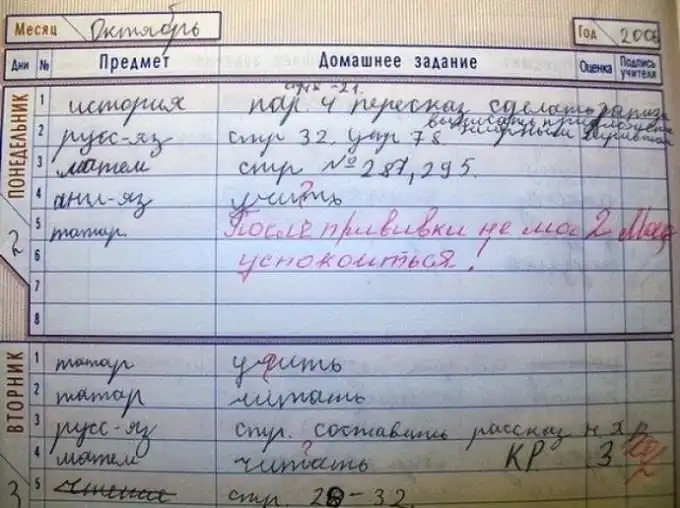 Месяц Октябрь Год 2006
Дни № Предмет Домашнее задание Оценка Подпись учителя
ПОНЕДЕЛЬНИК 2
стр -21.
1 история пар. 4 пересказ сделать
выписать
2 русс-яз стр 32. упр 78.
3 матем стр № 287, 295.
4 анг-яз учить ?
5 татар. После прививки не мог 2
6 успокоиться!
7
8
ВТОРНИК 3
1 татар учить
2 татар читать
3 русс-яз стр. составить рассказ н
?
4 матем читать КР. 3
5 чтение стр. 28-32.